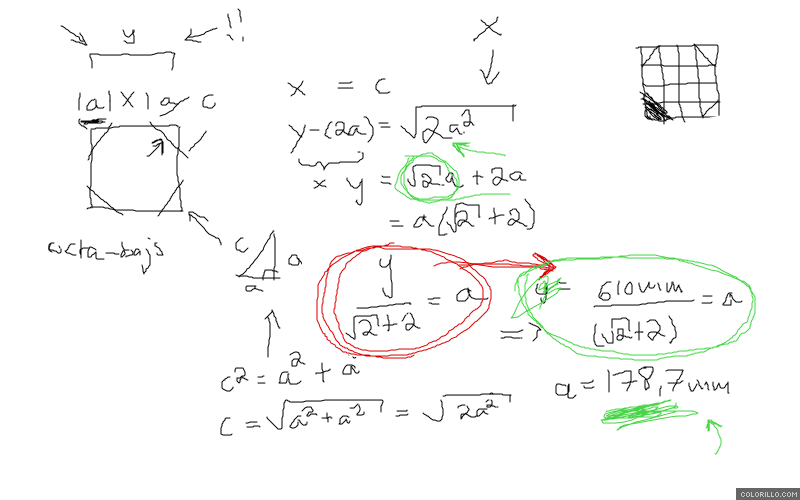 y !!
|a| X |a c
x
x = c
y-(2a) = √2a²
x y = √2 a + 2a
= a(√2 + 2)
c a
a
y / √2+2 = a
=>
y = 610mm / (√2+2) = a
c² = a² + a²
c = √a²+a² = √2a²
a = 178,7mm
COLORILLO.COM